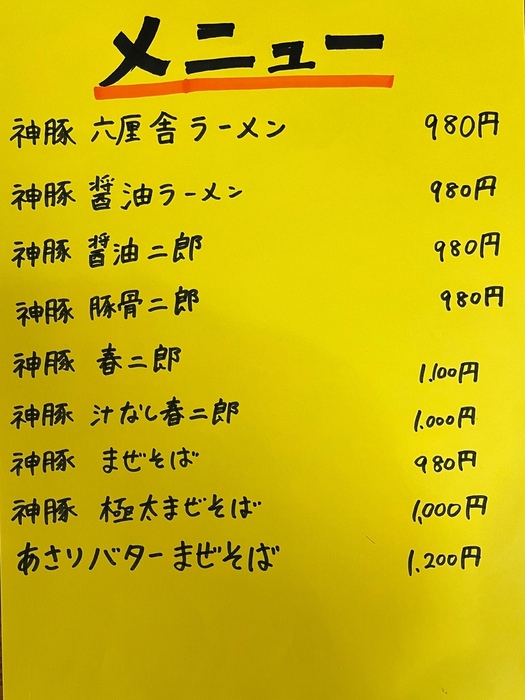 メニュー
神豚 六厘舎ラーメン 980円
神豚 醤油ラーメン 980円
神豚 醤油二郎 980円
神豚 豚骨二郎 980円
神豚 春二郎 1.100円
神豚 汁なし春二郎 1.000円
神豚 まぜそば 980円
神豚 極太まぜそば 1,000円
あさりバターまぜそば 1.200円